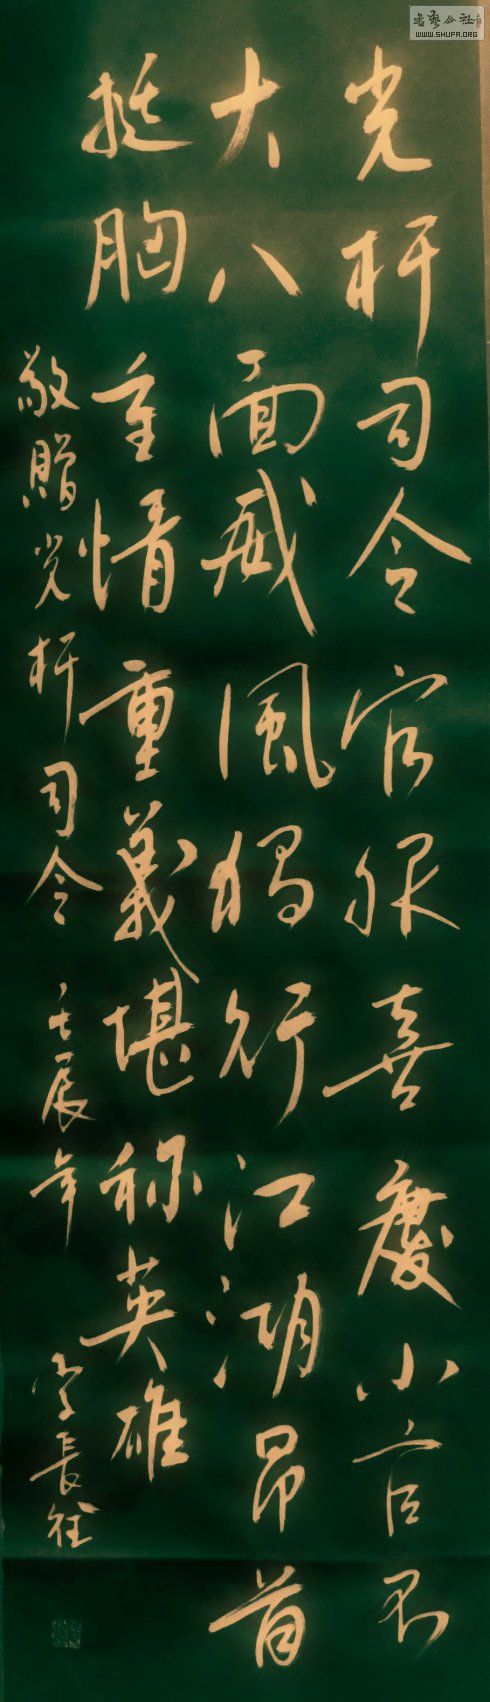 光杆司令官服喜庆小官不
大八面威风独行江湖昂首
挺胸重情重義堪称英雄
敬贈光杆司令 壬辰年 李長征
書藝公社
WWW.SHUFA.ORG